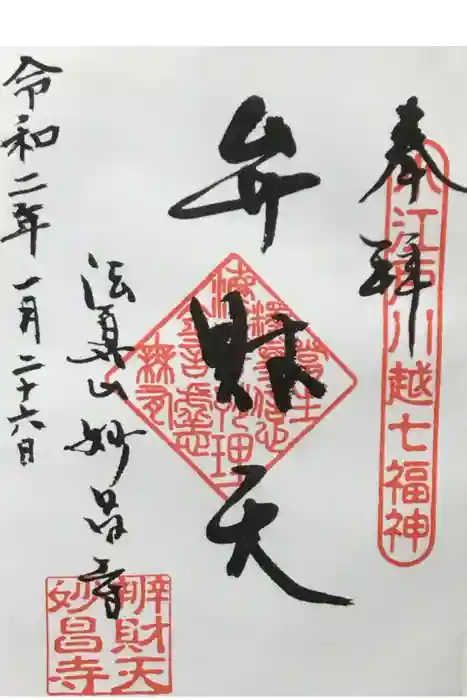 奉拝
小江戸川越七福神
弁財天
法眞山 妙昌寺
令和二年 一月二十六日
辨財天
妙昌寺